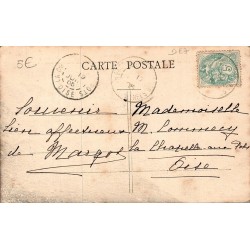 5E
CARTE POSTALE
Souvenir
bien affectueux
de Margot
Mademoiselle
M. Lommecy
La Chapelle aux Pots
Oise